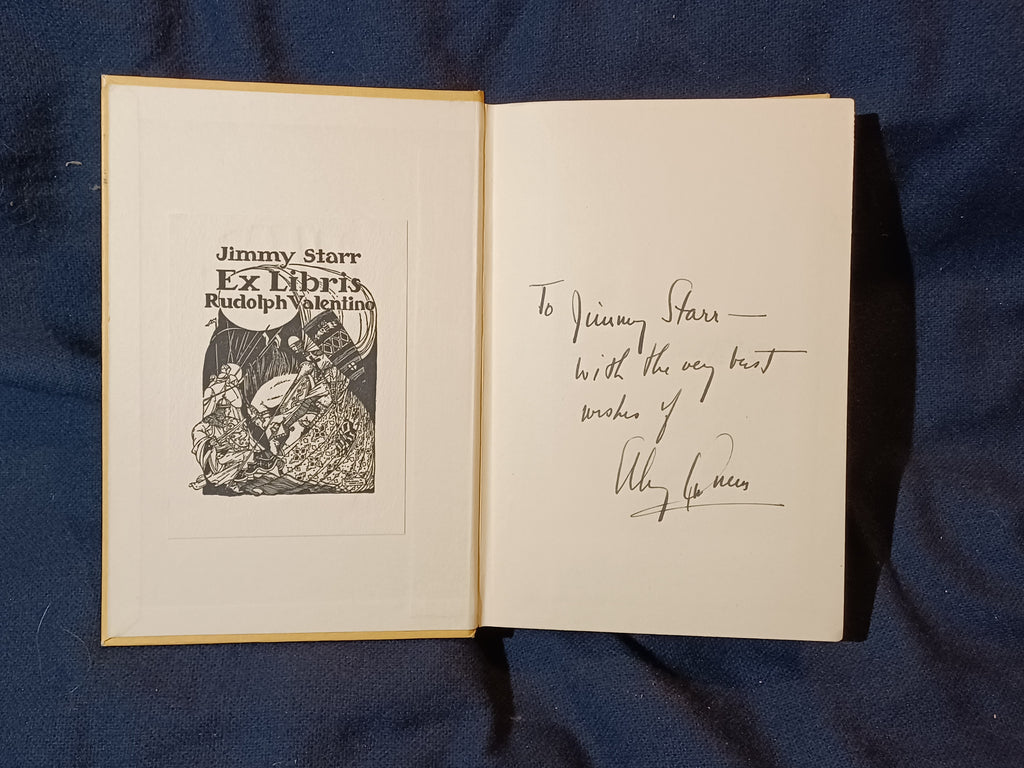 Jimmy Starr
Ex Libris
Rudolph Valentino
To Jimmy Starr —
with the very best
wishes of